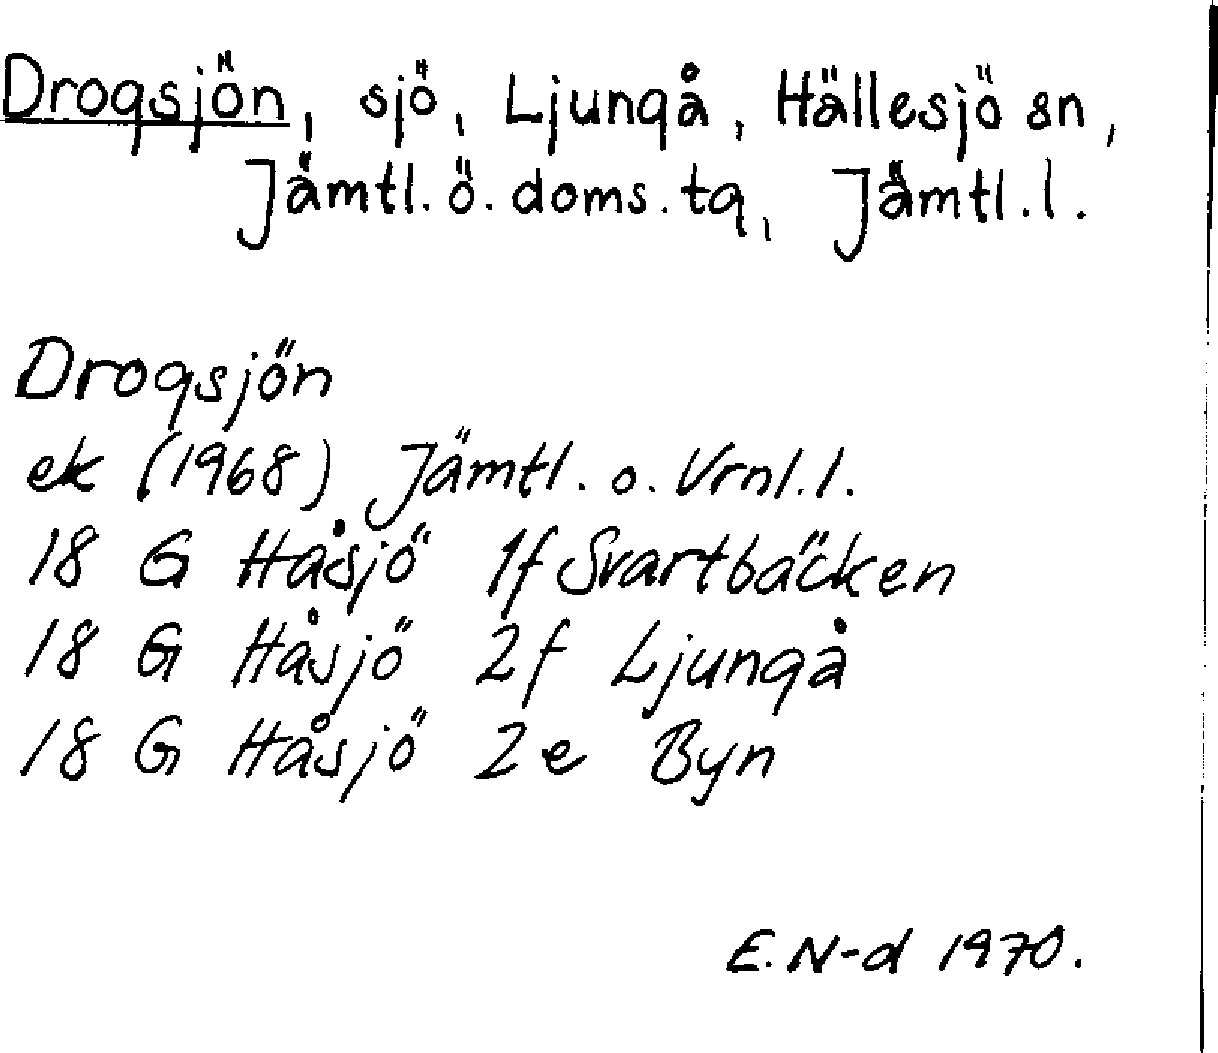 Drogsjön, sjö, Ljungå, Hällesjö sn,
Jämtl. ö. doms. tg, Jämtl. l.
Drogsjön
ek (1968) Jämtl. o. Vrnl. l.
18 G Håsjö 1f Svartbäcken
18 G Håsjö 2f Ljungå
18 G Håsjö 2e Byn
E. N-d 1970.